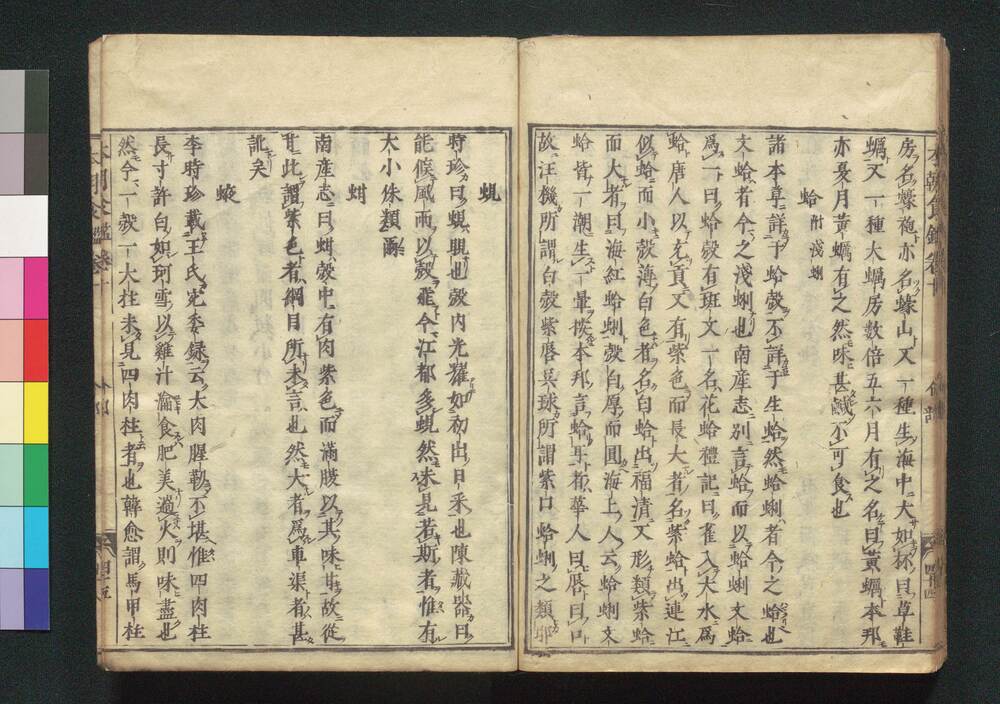 房名蠔莆亦名蠔山又一種生海中大如杯曰草鞋
蠣又一種大蠣房數倍五六月有之名曰黃蠣本邦
亦夏月黃蠣有之然味甚鹹不可食也
蛤 附淺蜊
諸本草詳于蛤殼不詳于生蛤然蛤蜊者今之蛤也
文蛤者今之淺蜊也南産志別言蛤而以蛤蜊文蛤
爲一曰蛤殼有斑文一名花蛤禮記曰雀入大水爲
蛤唐人以充貢又有紫色而長大者名紫蛤出連江
似蛤而小殼薄白色者名白蛤出福清又形類紫蛤
而大者曰海紅蛤蜊殼白厚而圓海上人云蛤蜊文
蛤皆一潮生一暈按本邦言蛤耳者華人曰唇曰口
故汪機所謂白殼紫唇吳球所謂紫口蛤蜊之類耶
蜆
時珍曰蜆晛也殼内光耀如初出日采也陳藏器曰
能候風雨以殼飛今江都多蜆然未見若斯者惟有
大小侏類爾
蚶
南産志曰蚶殼中有肉紫色而滿腹以其味甘故從
甘此謂紫色者綱目所未言也然大者爲車渠者甚
訛矣
蛟
李時珍載王氏宛委録云大肉腥韌不堪惟四肉柱
長寸許白如珂雪以雞汁瀹食肥美過火則味盡也
然今一殼一大柱未見四肉柱者也韓愈謂馬甲柱